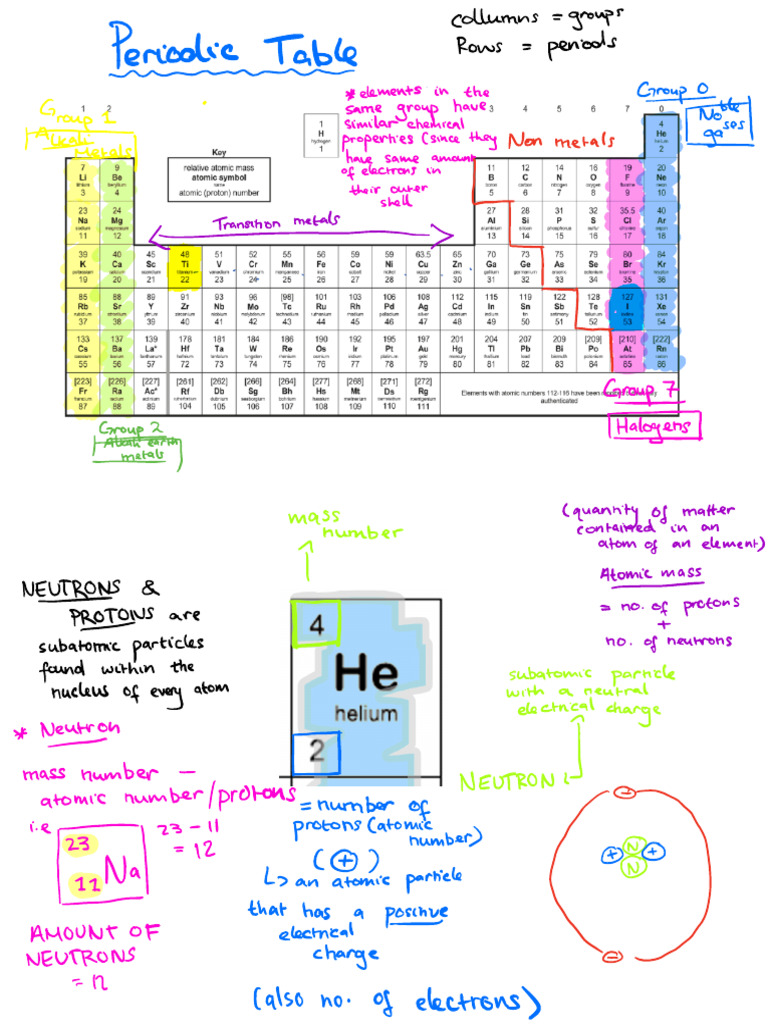 collumns = groups
Rows = periods
Periodic Table
* elements in the
same group have
similar chemical
properties (since they
have same amount
of electrons in
their outer
shell
Group 0
Noble
gases
Group 1
Alkali
Metals
Non metals
1 2 3 4 5 6 7 0
1
H
hydrogen
1
4
He
helium
2
Key
relative atomic mass
atomic symbol
name
atomic (proton) number
7 9 11 12 14 16 19 20
Li Be B C N O F Ne
lithium beryllium boron carbon nitrogen oxygen fluorine neon
3 4 5 6 7 8 9 10
Transition metals
23 24 27 28 31 32 35.5 40
Na Mg Al Si P S Cl Ar
sodium magnesium aluminium silicon phosphorus sulfur chlorine argon
11 12 13 14 15 16 17 18
39 40 45 48 51 52 55 56 59 59 63.5 65 70 73 75 79 80 84
K Ca Sc Ti V Cr Mn Fe Co Ni Cu Zn Ga Ge As Se Br Kr
potassium calcium scandium titanium vanadium chromium manganese iron cobalt nickel copper zinc gallium germanium arsenic selenium bromine krypton
19 20 21 22 23 24 25 26 27 28 29 30 31 32 33 34 35 36
85 88 89 91 93 96 [98] 101 103 106 108 112 115 119 122 128 127 131
Rb Sr Y Zr Nb Mo Tc Ru Rh Pd Ag Cd In Sn Sb Te I Xe
rubidium strontium yttrium zirconium niobium molybdenum technetium ruthenium rhodium palladium silver cadmium indium tin antimony tellurium iodine xenon
37 38 39 40 41 42 43 44 45 46 47 48 49 50 51 52 53 54
133 137 139 178 181 184 186 190 192 195 197 201 204 207 209 [209] [210] [222]
Cs Ba La* Hf Ta W Re Os Ir Pt Au Hg Tl Pb Bi Po At Rn
caesium barium lanthanum hafnium tantalum tungsten rhenium osmium iridium platinum gold mercury thallium lead bismuth polonium astatine radon
55 56 57 72 73 74 75 76 77 78 79 80 81 82 83 84 85 86
[223] [226] [227] [261] [262] [266] [264] [277] [268] [271] [272]
Fr Ra Ac* Rf Db Sg Bh Hs Mt Ds Rg
francium radium actinium rutherfordium dubnium seaborgium bohrium hassium meitnerium darmstadtium roentgenium
87 88 89 104 105 106 107 108 109 110 111
Elements with atomic numbers 112-116 have been
authenticated
Group 7
Halogens
Group 2
Alkali earth
metals
mass
number
(quantity of matter
contained in an
atom of an element)
Atomic mass
= no. of protons
+
no. of neutrons
NEUTRONS &
PROTONS are
subatomic particles
found within the
nucleus of every atom
4
He
helium
2
subatomic particle
with a neutral
electrical charge
NEUTRON:
* Neutron
mass number -
atomic number/protons
i.e
23
11 Na
23 - 11
= 12
AMOUNT OF
NEUTRONS
= 12
= number of
protons (atomic
number)
(+)
↳ an atomic particle
that has a positive
electrical
charge
(also no. of electrons)
-
+ N +
N
-